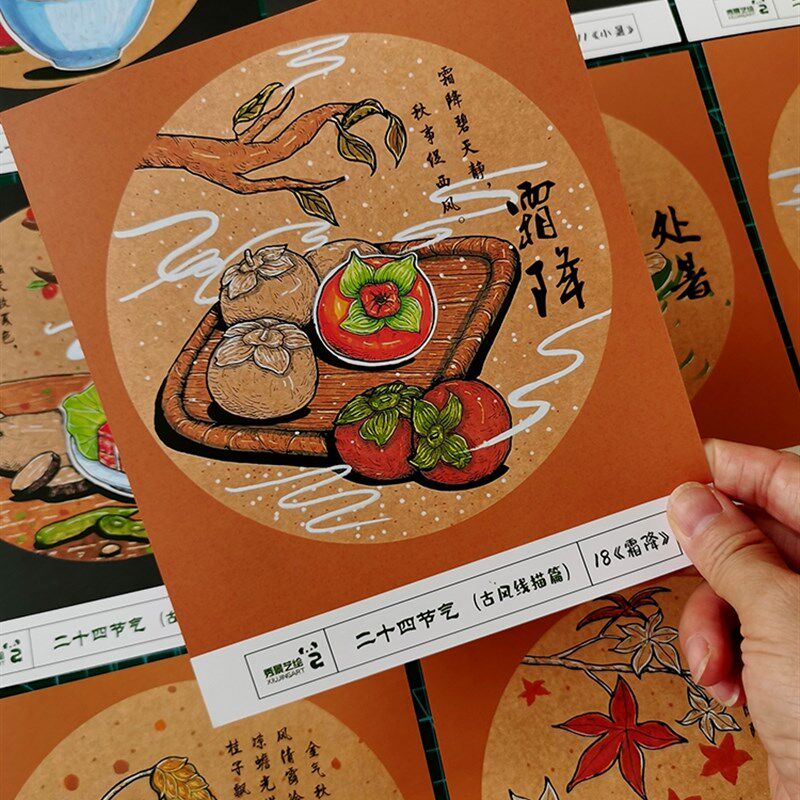 霜降碧天静，
秋事促西风。
霜降
秀景艺绘
XIUJINGART
二十四节气（古风线描篇）
18《霜降》
处暑
二十四节气（古
金气秋
风清露
凉蟾光
桂子飘
《小暑》